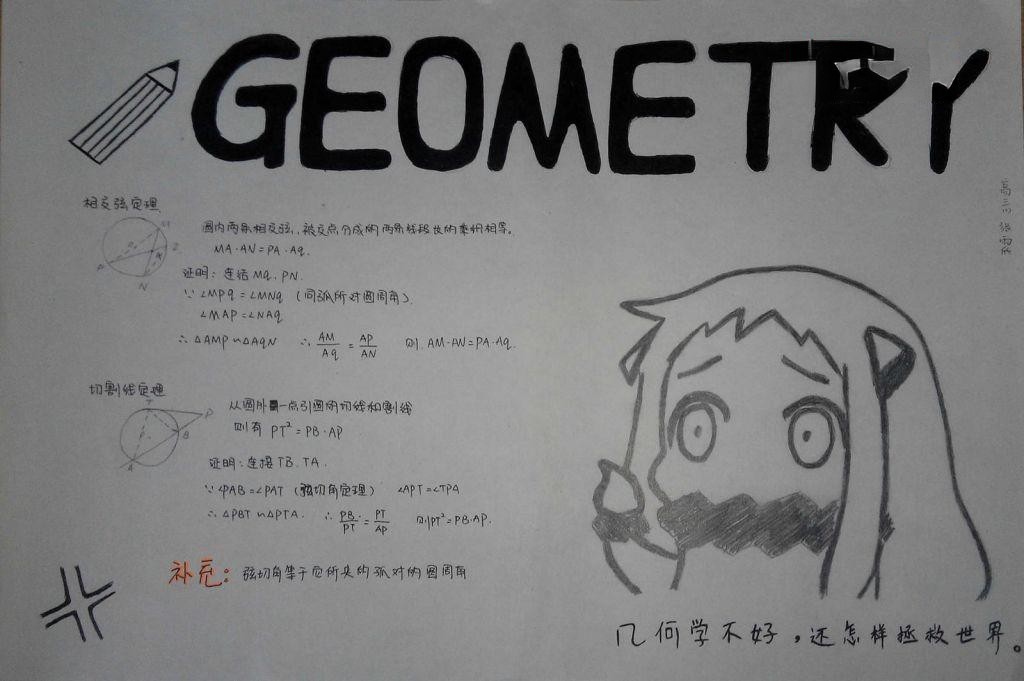 GEOMETRY
高三(7) 张雨欣
相交弦定理
圆内两条相交弦，被交点分成的两条线段长的乘积相等。
MA·AN=PA·AQ.
证明：连结MQ.PN.
∵∠MPQ=∠MNQ（同弧所对圆周角）
∠MAP=∠NAQ
∴△AMP∽△AQN ∴AM/AQ=AP/AN 则.AM·AN=PA·AQ.
N
切割线定理
T
P
B
A
从圆外一点引圆的切线和割线
则有 PT²=PB·AP
证明：连接TB.TA.
∵∠PAB=∠PAT（弦切角定理） ∠APT=∠TPA
∴△PBT∽△PTA. ∴PB/PT=PT/AP 则PT²=PB·AP.
补充：弦切角等于它所夹的弧对的圆周角
几何学不好，还怎样拯救世界。